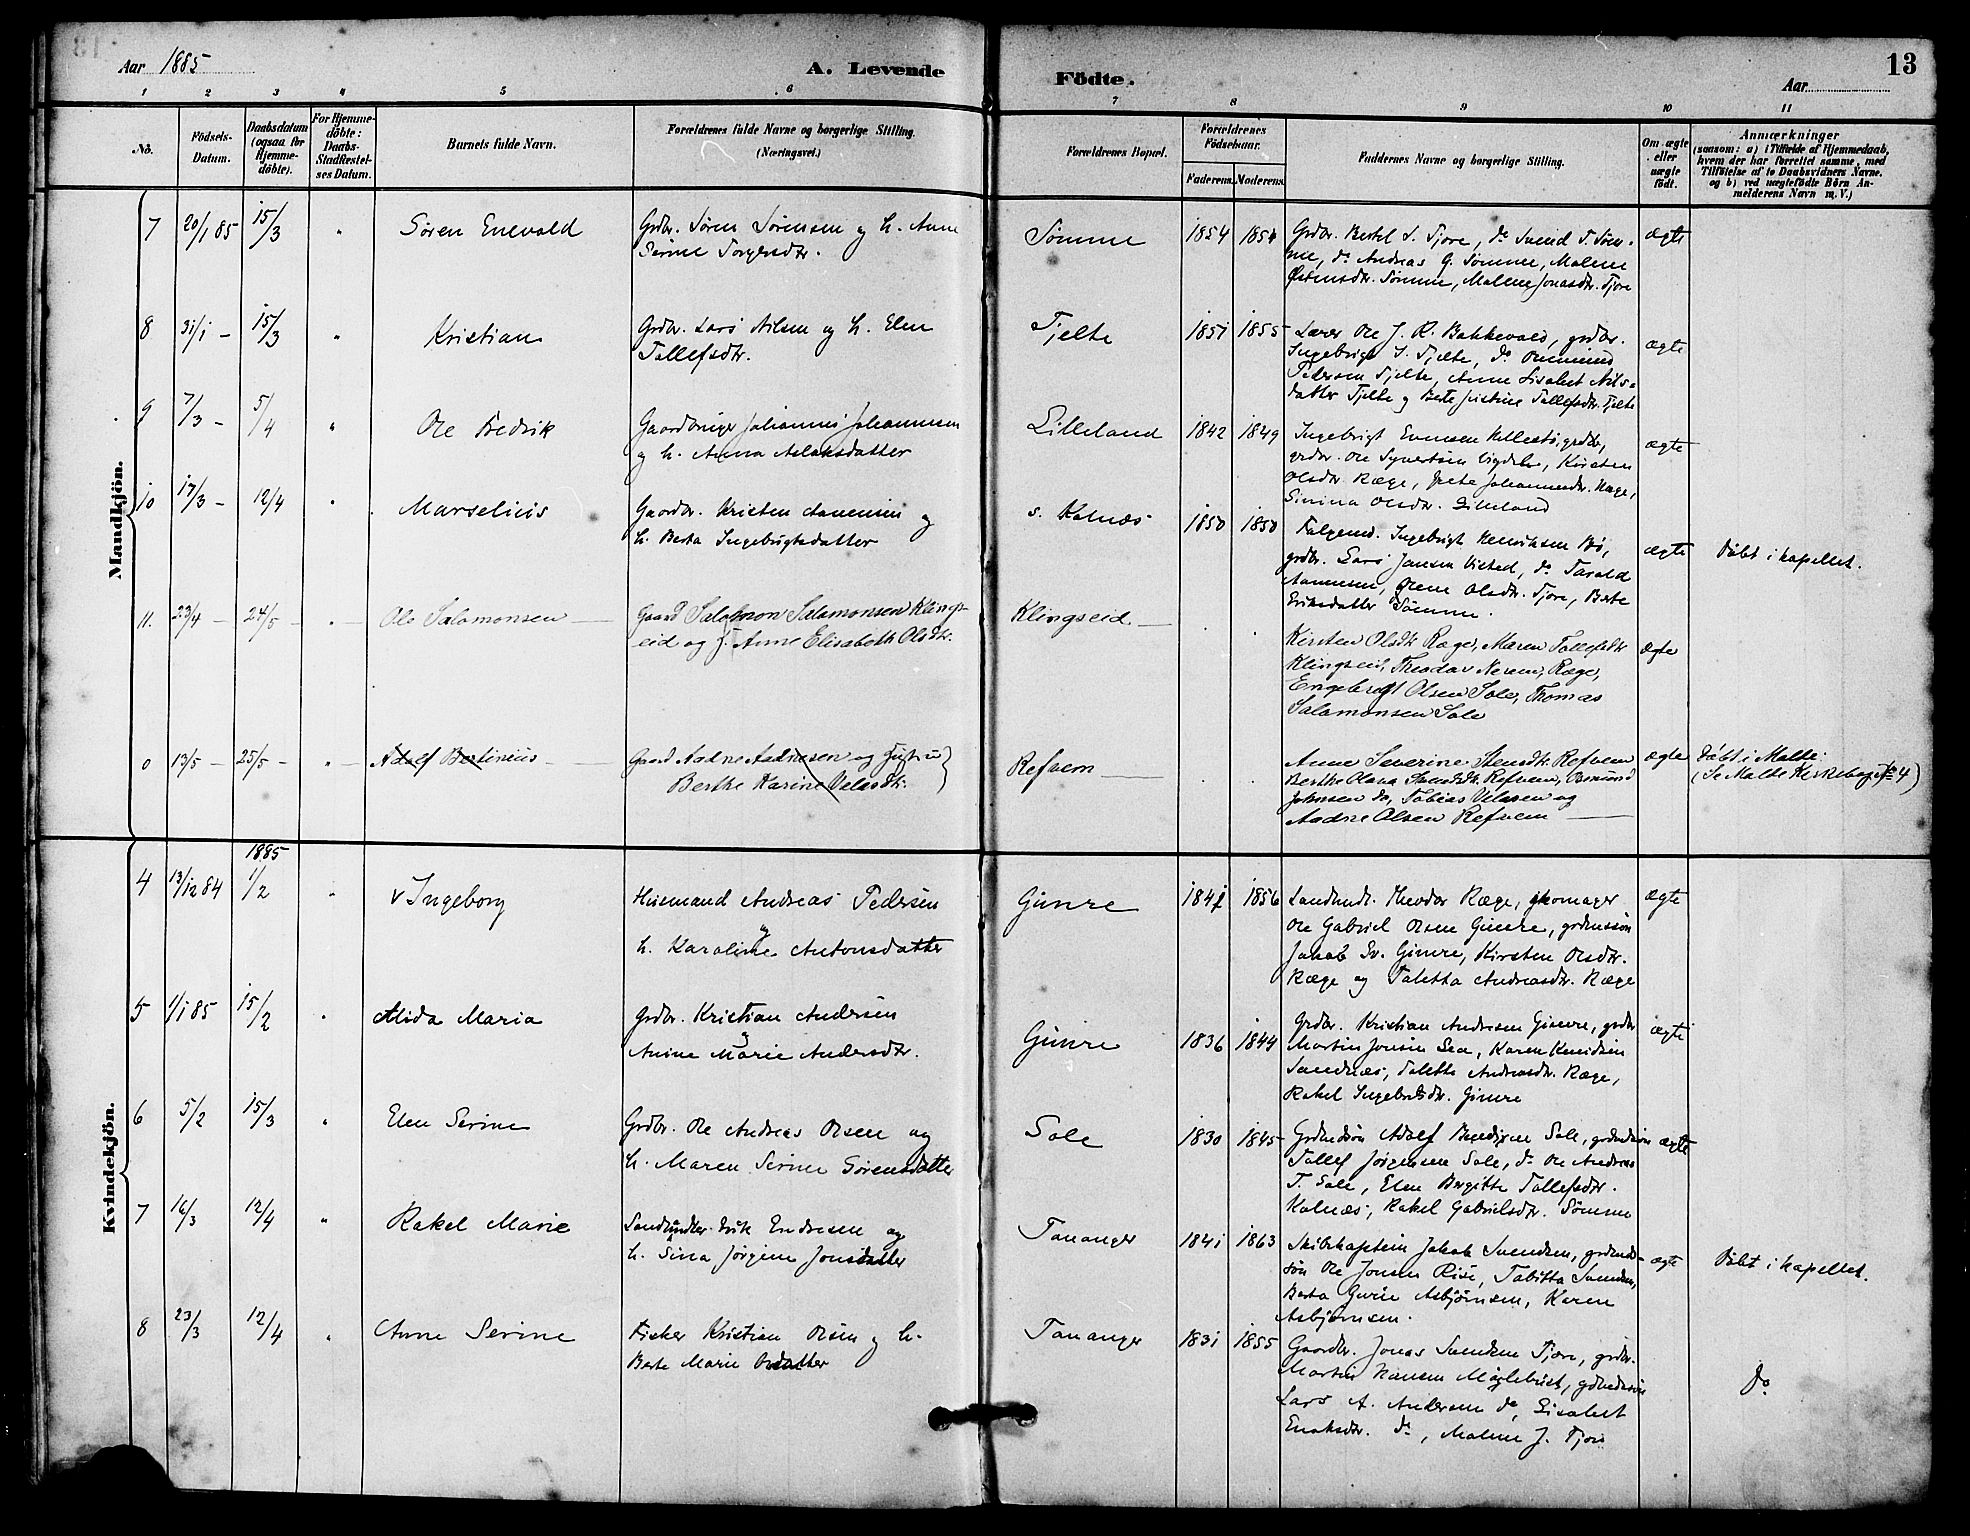 Aar 1885
A. Levende Födte.
13
Aar
1 2 3 4 5 6 7 8 9 10 11
No.
Födsels-Datum.
Daabsdatum (ogsaa for Hjemme-döbte).
For Hjemme-döbte: Daabs-Stadfæstel-ses Datum.
Barnets fulde Navn.
Forældrenes fulde Navne og borgerlige Stilling.
(Næringsvei.)
Forældrenes Bopæl.
Forældrenes Födselsaar.
Faderens. Moderens.
Faddernes Navne og borgerlige Stilling.
Om ægte eller uægte födt.
Anmærkninger
(saasom: a) i Tilfælde af Hjemmedaab,
hvem der har forrettet samme, med
Tilföielse af to Daabsvidners Navne.
og b) ved uægtefödte Börn An-
melderens Navn m. V.)
Mandkjön.
7 20/1 85 15/3 " Sören Enevald
Grdbr. Søren Sørensen og h. Anne
Serine Torgersdtr.
Sømme 1854 1854
Grdbr. Bertel S. Tjore, do Svend T. Søm-
me, do Andreas G. Sømme, Malene
Østensdtr. Sømme, Malene Jonasdtr. Tjore
ægte
8 31/1 - 15/3 " Kristian
Grdbr. Lars Nilsen og h. Elen
Tollefsdtr.
Tjelte 1851 1855
Lærer Ole J. R. Bakkevold, grdbr.
Ingebrigt S. Tjelte, do
Pedersen Tjelte, Anne Lisabet Nils-
datter Tjelte og Berte Justine Tollefsdtr. Tjelte
ægte
9 7/3 - 5/4 " Ole Fredrik
Gaardbruger Johannes Johannesen
og h. Anna Aslaksdatter
Lilleland 1842 1849
Ingebrigt Evensen grdbr,
grdbr. Ole Syvertsen Vigdel, Kirsten
Olsdtr. Ræge, Grete Johannesdtr. Ræge,
Sinina Olsdtr. Lilleland
ægte
10 17/3 - 12/4 " Marselius
Gaardbr. Kristen Aanensen og
h. Berta Ingebrigtsdatter
s. Kolnæs 1850 1850
Ingebrigt Henriksen Bø,
grdbr. Lars Jansen Visted, do Tarald
Aanensen, Olsdtr. Tjore, Berte
Eriksdatter Sømme.
ægte Døbt i kapellet.
11. 23/4 - 24/5 - " - Ole Salamonsen
Gaard Salomon Salamonsen Klings-
eid og h. Anne Elisabeth Olsdtr.
Klingseid
Kirsten Olsdtr Ræge, Maren Tollefsdtr
Klingseid, Theodor Ræge,
Engebregt Olsen Sole, Thomas
Salamonsen Sole
ægte
0 13/5 - 25/5 - " - Adolf Bertinius
Gaard Aadne Aadnesen og Hustru
Berthe Karine Velasdtr.
Refvem
Anne Severine Stensdtr. Refvem
Berthe Olava Refvem,
Johnsen do, Tobias Velasen og
Aadne Olsen Refvem
ægte
Døbt i Malte.
(Se Malte Kirkebog № 4)
Kvindekjön.
1885
4 13/12 84 1/2 " v Ingeborg
Husmand Andreas Pedersen
og
h. Karoline Antonsdatter
Gimre 1841 1856
Landhndl. Theodor Ræge, skomager
Ole Gabriel Olsen Gimre, grdmssøn
Jakob Sv. Gimre, Kirsten Olsdtr.
Ræge og Taletta Andreasdtr. Ræge
ægte
5 1/1 85 15/2 " Alida Maria
Grdbr. Kristian Andersen
og
Anine Marie Andersdtr.
Gimre 1836 1844
Grdbr. Kristian Andersen Gimre, grdbr
Martin Jonsen Sea, Karen Knudsen
Sandnæs, Taletta Andreasdtr. Ræge,
Rakel Ingebretsdtr. Gimre
ægte
6 5/2 15/3 " Elen Serine
Grdbr. Ole Andreas Olsen og
h. Maren Serine Sørensdatter
Sole 1830 1845
Grdmdsøn Adolf Sole, grdmdsøn
Tollef Jørgensen Sole, do Ole Andreas
T. Sole, Elen Bergitte Tollefsdtr.
Kolnæs, Rakel Gabrielsdtr. Sømme
ægte
7 16/3 12/4 " Rakel Marie
Landhndler. Erik Endresen og
h. Sina Jørgine Jonsdatter
Tananger 1841 1863
Skibskaptein Jakob Svendsen, grdmds-
søn Ole Jonsen Risa, Tabitta Svendsen,
Berta Gurie Asbjørnsen, Karen
Asbjørnsen.
ægte Døbt i kapellet.
8 23/3 12/4 " Anne Serine
Fisker Kristian Olsen og h.
Berte Marie Olsdatter
Tananger 1831 1855
Gaardbr. Jonas Svendsen Tjore, grdbr.
Martin Hansen Møglebust, grdmdsøn
Lars A. Andersen do, Lisabet
Enoksdtr. do, Malene J. Tjore
do